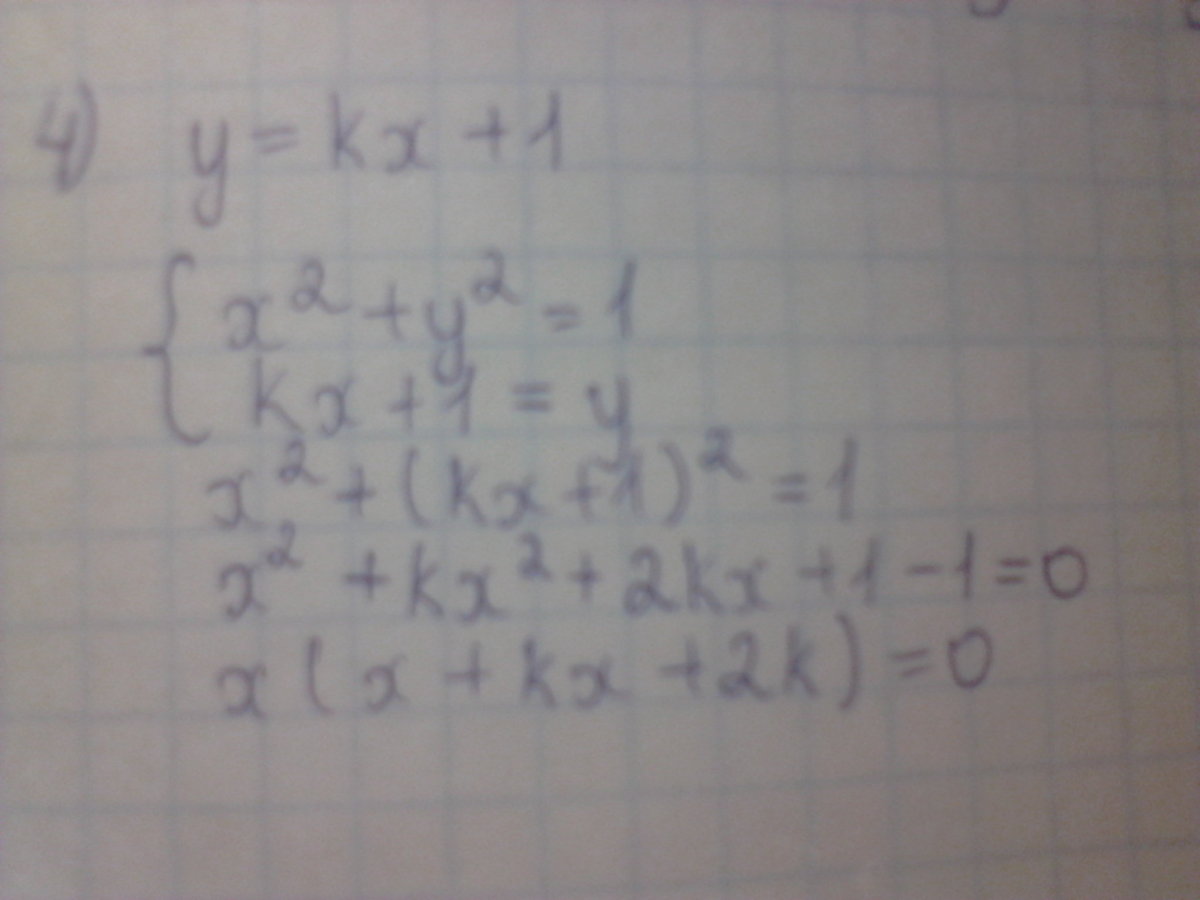 4) y = kx + 1
x² + y² = 1
kx + 1 = y
x² + (kx + 1)² = 1
x² + kx² + 2kx + 1 - 1 = 0
x (x + kx + 2k) = 0